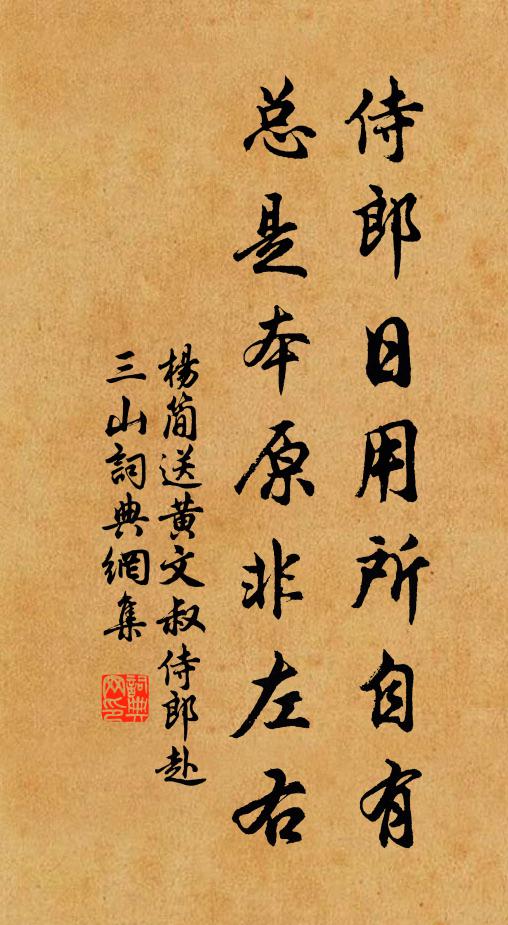 侍郎日用所自有
总是本原非左右
楊简送黄文叔侍郎赴
三山詞典網集
詞典網印